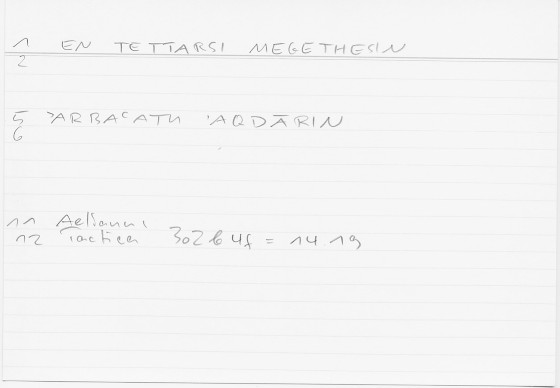 1 EN TETTARSI MEGETHESIN
2
5 ʾARBAʿATU ʾAQDĀRIN
6
11 Aelianus
12 Tactica 302 b 4f = 14.19